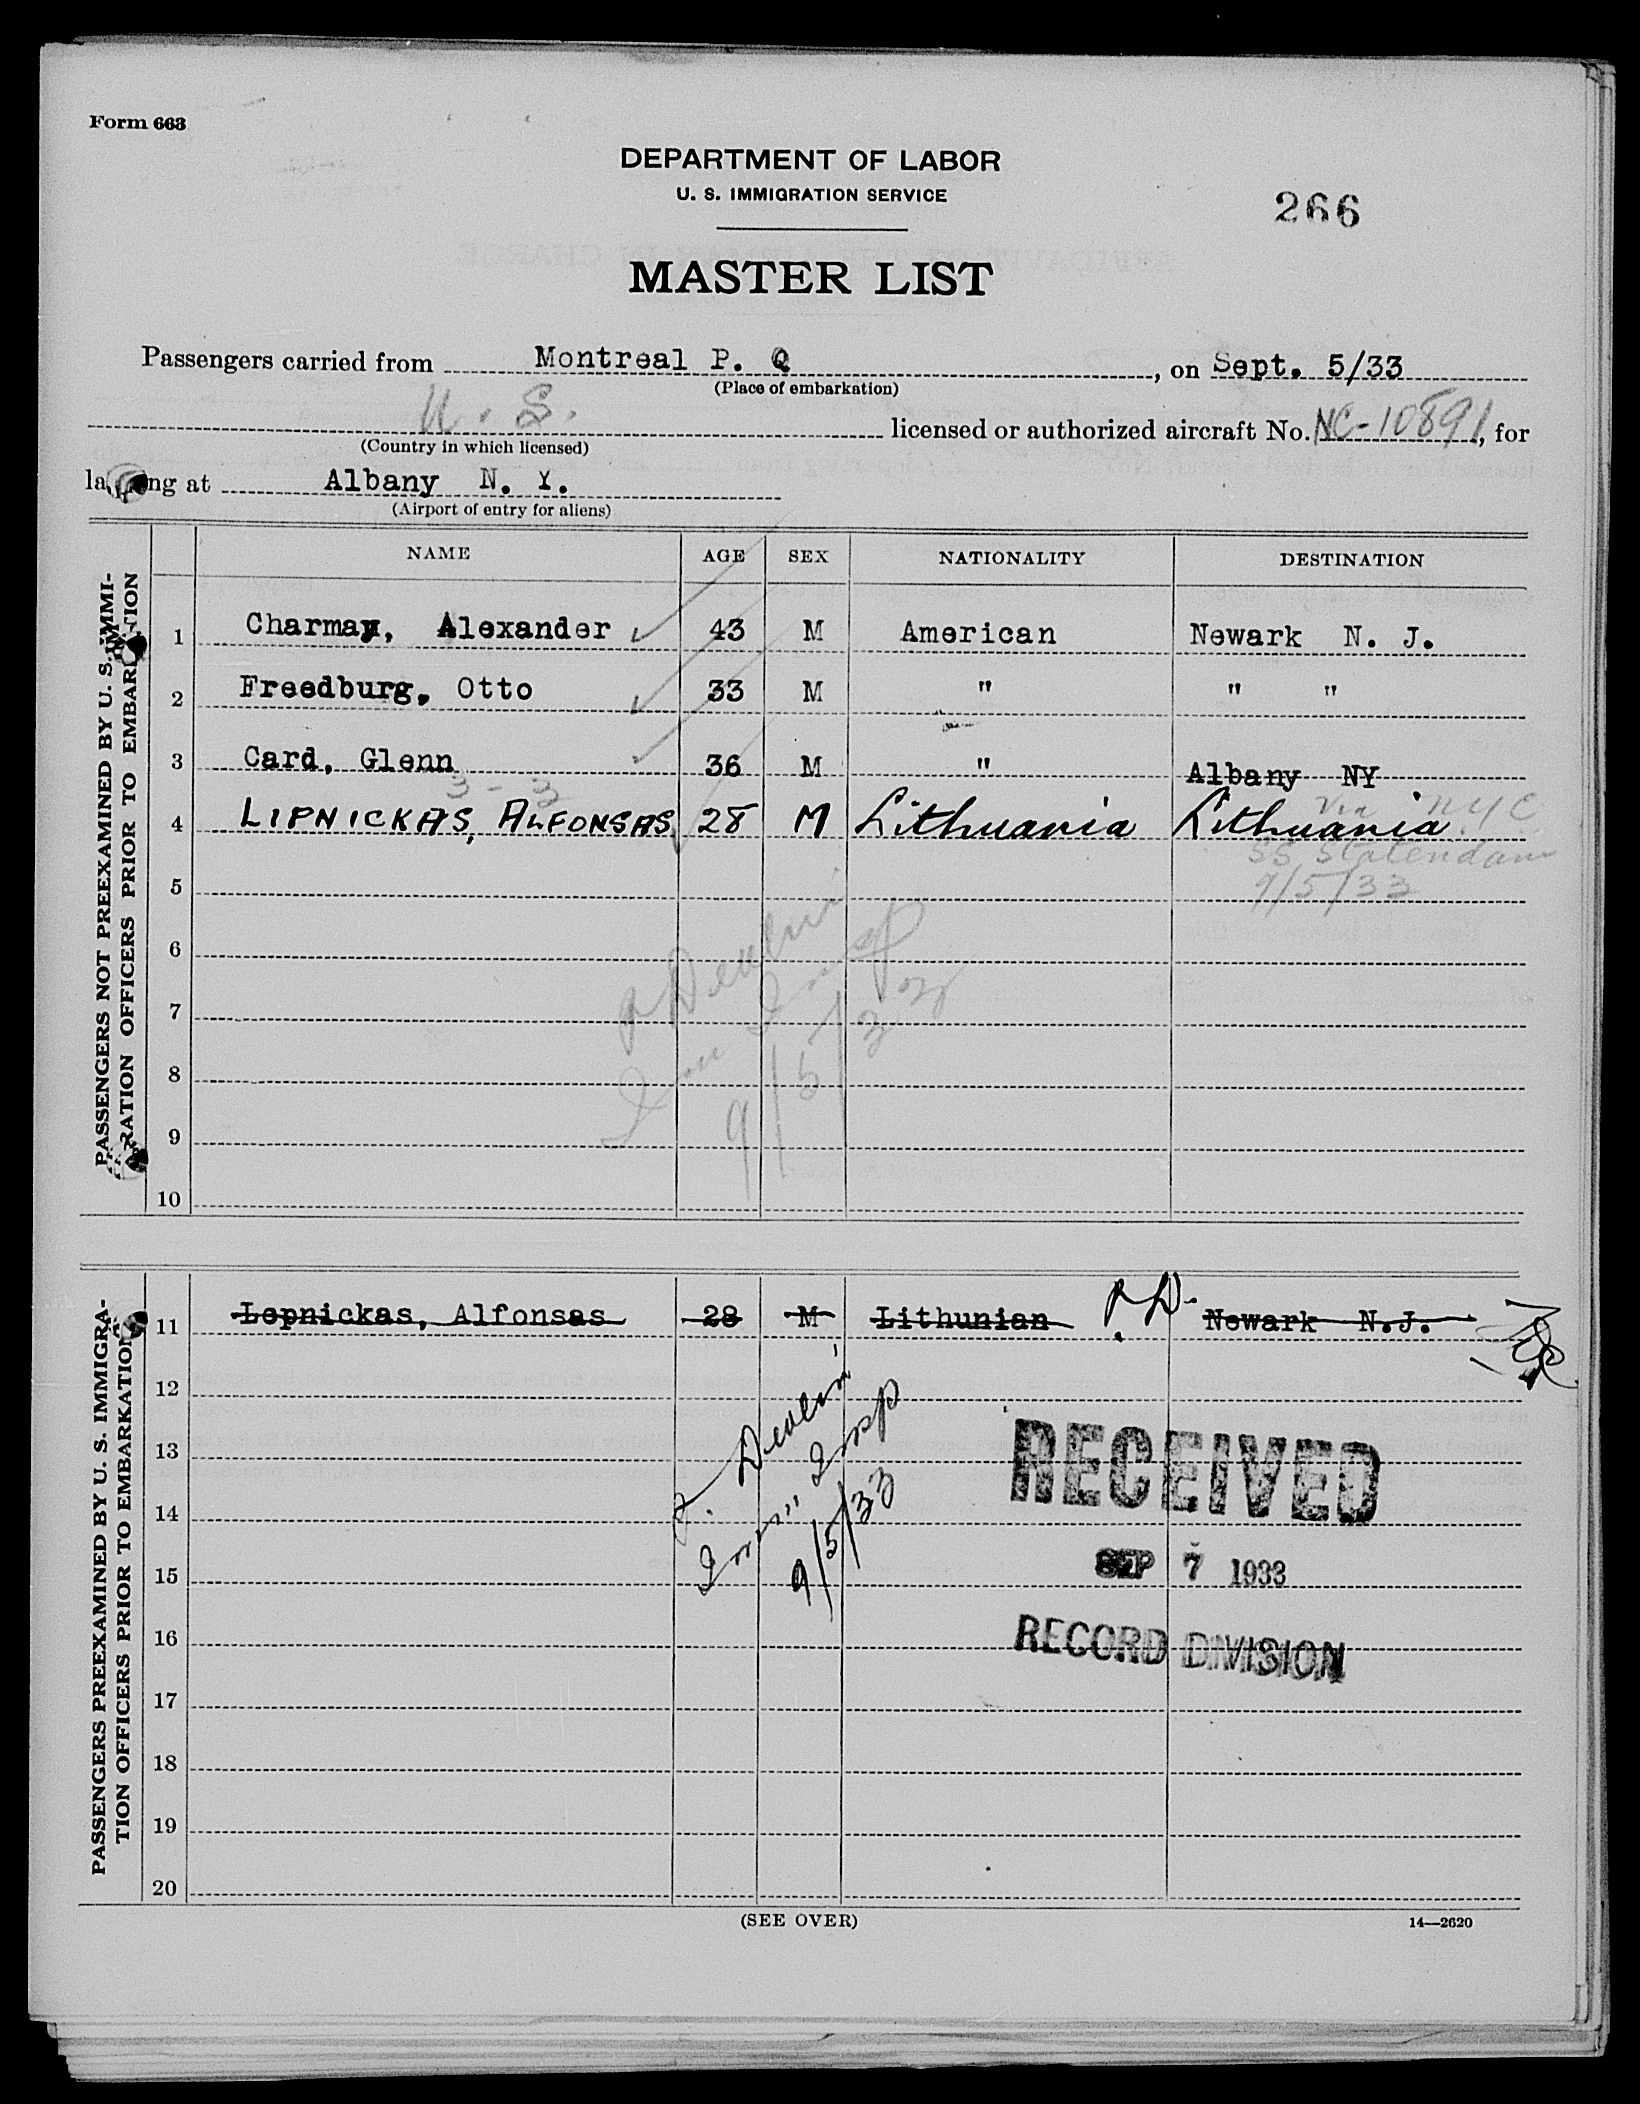 Form 663
DEPARTMENT OF LABOR
U. S. IMMIGRATION SERVICE
266
MASTER LIST
Passengers carried from Montreal P. Q, on Sept. 5/33
(Place of embarkation)
U. S. licensed or authorized aircraft No. NC-10891, for
(Country in which licensed)
landing at Albany N. Y.
(Airport of entry for aliens)
PASSENGERS NOT PREEXAMINED BY U. S. IMMI-
GRATION OFFICERS PRIOR TO EMBARKATION
NAME AGE SEX NATIONALITY DESTINATION
1 Charman, Alexander 43 M American Newark N. J.
2 Freedburg, Otto 33 M " " "
3 Card, Glenn 36 M " Albany NY
3-3
Via N.Y.C
4 LIPNICKAS, ALFONSAS 28 M Lithuania Lithuania
SS Statendam
9/5/33
5
6
7
8
9
10
Devlin
Imm Insp
9/5/33
PASSENGERS PREEXAMINED BY U. S. IMMIGRA-
TION OFFICERS PRIOR TO EMBARKATION
11 Lepnickas, Alfonsas 28 M Lithunian Newark N.J.
12
13
14
15
16
17
18
19
20
Devlin
Imm Insp
9/5/33
RECEIVED
SEP 7 1933
RECORD DIVISION
(SEE OVER)
14—2620